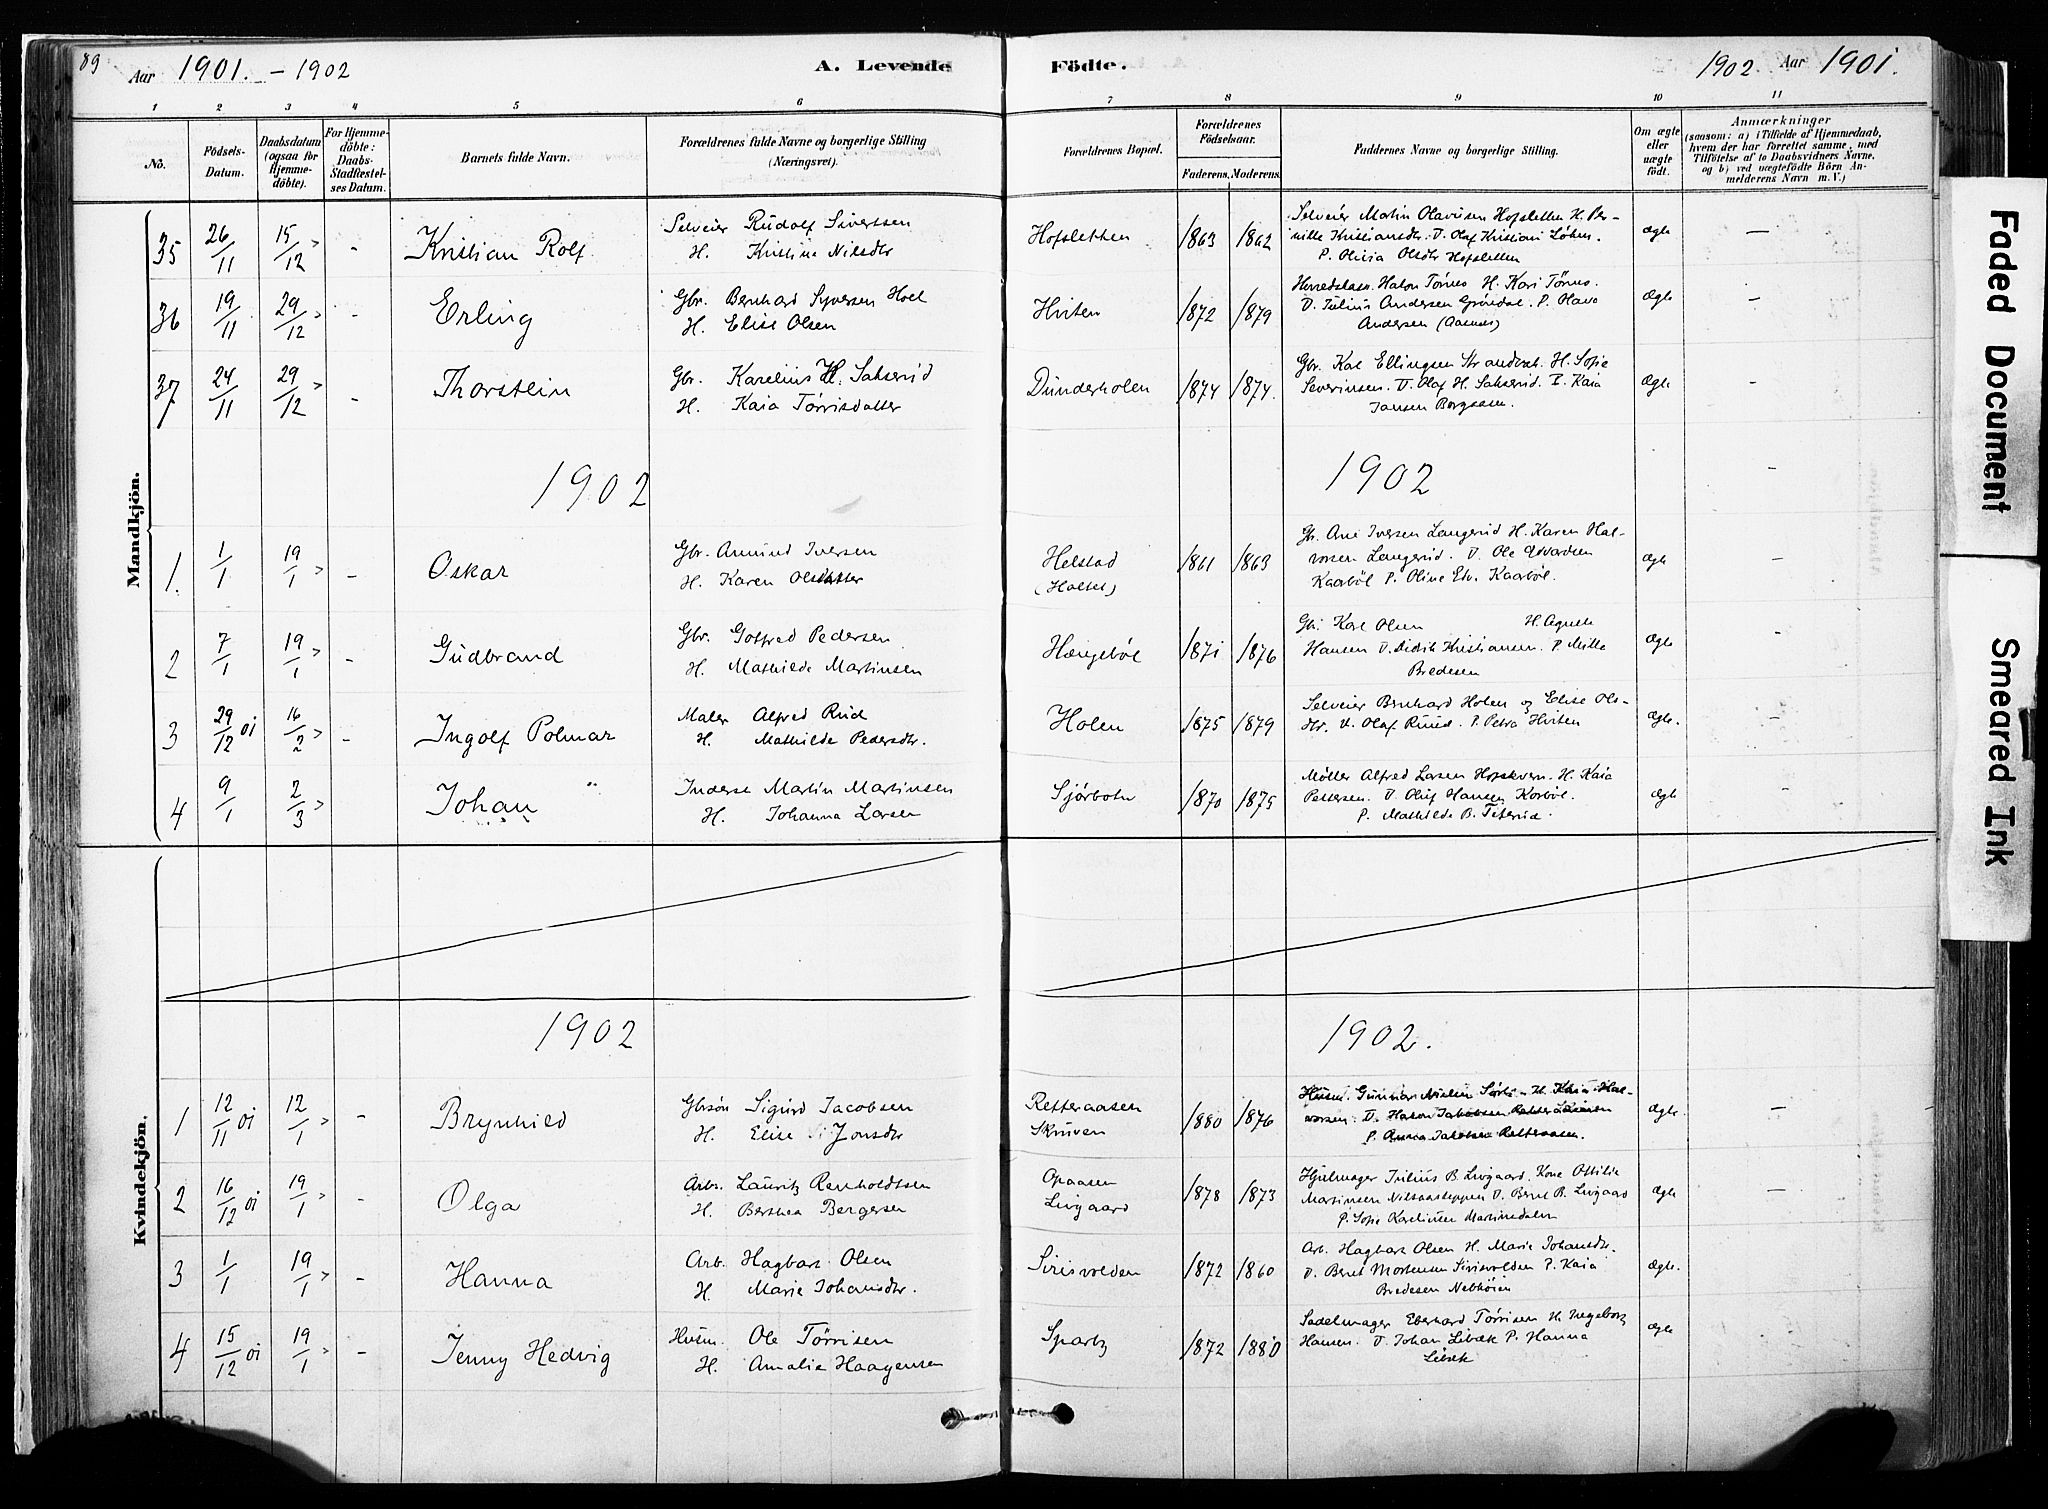 89 Aar 1901. - 1902 A. Levende Födte. 1902 Aar 1901.
1 2 3 4 5 6 7 8 9 10 11
No.
Födsels-
Datum.
Daabsdatum
(ogsaa for
Hjemme-
döbte).
For Hjemme-
döbte:
Daabs-
Stadfæstel-
ses Datum.
Barnets fulde Navn.
Forældrenes fulde Navne og borgerlige Stilling
(Næringsvei).
Forældrenes Bopæl.
Forældrenes
Födselsaar.
Faderens. Moderens.
Faddernes Navne og borgerlige Stilling.
Om ægte
eller
uægte
födt.
Anmærkninger
(saasom: a) i Tilfælde af Hjemmedaab,
hvem der har forrettet samme, med
Tilföielse af to Daabsvidners Navne,
og b) ved uægtefödte Börn An-
melderens Navn m. V.)
Mandkjön.
35 26/11 15/12 - Kristian Rolf
Selveier Rudolf Sivertsen
H. Kristine Nilsdtr
Hofsletten 1863 1862
Selveier Martin Olavesen Hofsletten H. Per-
nille Kristiansdtr. U. Olaf Kristian Löken.
P. Olivia Olsdtr Hofsletten
ægte —
36 19/11 29/12 - Erling
Gbr. Bernhard Syversen Hoel
H. Elise Olsen
Hviten 1872 1879
Hakon Törnes H. Kari Törnes.
U. Julius Andersen Gröndal. P. Olava
Andersen (Aasnes)
Ægte —
37 24/11 29/12 - Thorstein
Gbr. Karelius H. Sahserid
H. Kaia Törrisdatter
Dunderholen 1874 1874.
Gbr. Karl Ellingsen H. Sofie
Severinsen. U. Olaf H. Sahserid. P. Kaia
Jansen Borgaasen.
Ægte —
1902 1902 —
1. 1/1 19/1 - Oskar
Gbr. Amund Iversen
H. Karen Olsdatter
Helstad
(Holtet)
1861 1863
Gb. Ane Iversen Langerud H. Karen Hal-
vorsen Langerud. U. Ole Edvardsen
Kaaböl P. Oline Edv. Kaaböl.
Ægte —
2 7/1 19/1 - Gudbrand
Gbr. Gotfred Pedersen
H. Mathilde Martinsen
Hængeböl 1871 1876
Gbr Karl Olsen H. Agnete
Hansen U. Didrik Kristiansen. P. Milla
Bredesen
Ægte -
3 29/12 01 16/2 - Ingolf Polmar
Maler Alfred Rud
H. Mathilde Pedersdtr.
Holen 1875 1879
Selveier Bernhard Holen og Elise Ols-
dtr. U. Olaf Ruud. P. Petra Hviten
Ægte. -
4 9/1 2/3 Johan "
Inderst Martin Martinsen
H. Johanna Larsen
Sjörbotn 1870 1875
Möller Alfred Larsen Hofskvern. H. Kaia
Pettersen. U. Oluf Hansen Korböl.
P. Mathilde B. Titerud.
Ægte -
Kvindekjön.
1902 1902.
1 12/11 01 12/1 - Brynhild
Gbrsön Sigurd Jacobsen
H. Elise Jonsdtr
Retteraasen
Skruven
1880 1876
Husm. Gunnar Nielsen H. Kaia Hal-
vorsen: U. Hakon Jakobsen Retteraasen
P. Anna Jakobsen Retteraasen.
Ægte. —
2 16/12 01 19/1 - Olga
Arb. Lauritz Renholdtsen
H. Berthea Bergersen
Opaasen
Livgaard
1878 1873
Hjulmager Julius B. Livgaard. Kone Ottilie
Martinsen U. Bernt B. Livgaard
P. Sofie Kareliusen Martinsdalen
Ægte —
3 1/1 19/1 - Hanna
Arb. Hagbart Olsen
H. Marie Johansdtr.
Sirisvolden 1872 1860
Arb. Hagbart Olsen H. Marie Johansdtr.
U. Bernt Mortensen Sirisvolden P. Kaia
Bredesen Nebhöien
Ægte.
4 15/12 01 19/1 - Jenny Hedvig
Husm. Ole Törrisen
H. Amalie Haagensen
Sparby 1872 1880
Sadelmager Eberhard Törrisen H. Ingeborg
Hansen. U. Johan Libæk P. Hanna
Libæk
Ægte
Faded Document
Smeared Ink